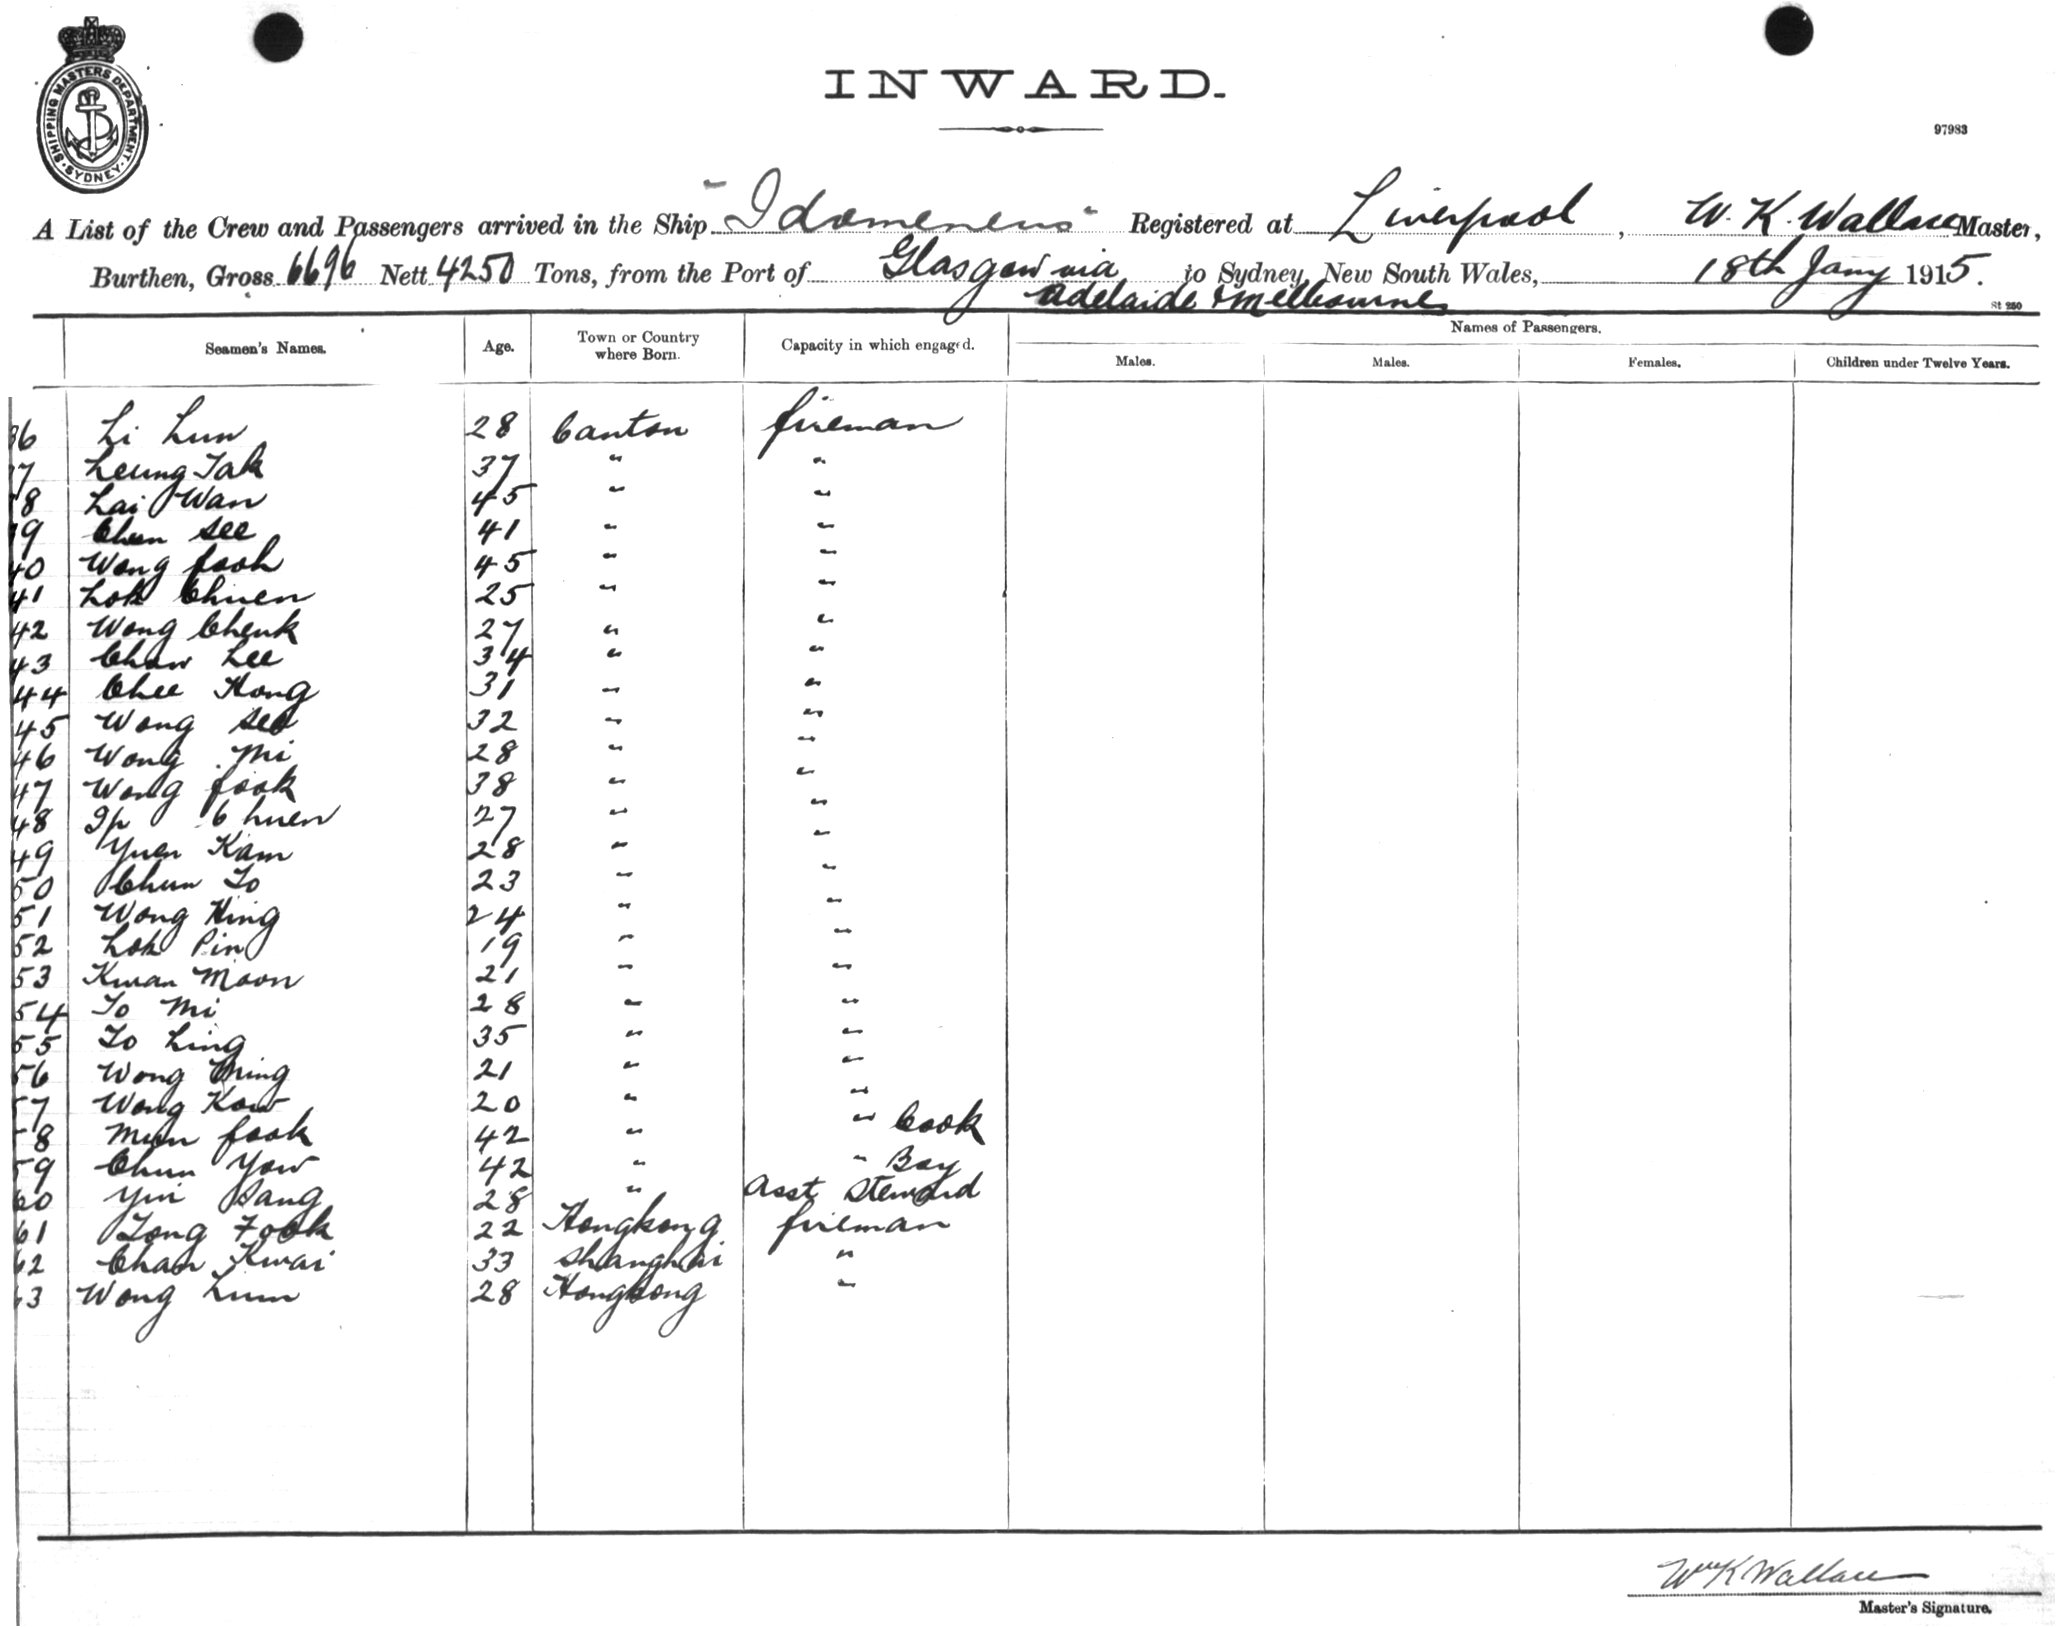 SHIPPING MASTERS DEPARTMENT. SYDNEY
INWARD.
97983
A List of the Crew and Passengers arrived in the Ship "Idomeneus" Registered at Liverpool, W. K. Wallace Master,
Burthen, Gross 6696 Nett 4250 Tons, from the Port of Glasgow via to Sydney, New South Wales, 18th Jany 1915.
Adelaide & Melbourne
St 250
Seamen's Names. Age. Town or Country where Born. Capacity in which engaged. Names of Passengers.
Males. Males. Females. Children under Twelve Years.
36 Li Lun 28 Canton fireman
37 Leung Tak 37 " "
38 Lai Wan 45 " "
39 Chun See 41 " "
40 Wong fook 45 " "
41 Lok Chuen 25 " "
42 Wong Cheuk 27 " "
43 Chow Lee 34 " "
44 Chee Hong 31 " "
45 Wong See 32 " "
46 Wong Mi 28 " "
47 Wong fook 38 " "
48 Ip Chuen 27 " "
49 Yuen Kam 28 " "
50 Chun To 23 " "
51 Wong Hing 24 " "
52 Lok Pin 19 " "
53 Kwan Moon 21 " "
54 To Mi 28 " "
55 To Ling 35 " "
56 Wong Ming 21 " "
57 Wong Kow 20 " "
58 Mun fook 42 " " Cook
59 Chun Yow 42 " " Boy
60 Yui Sang 28 " Asst Steward
61 Tong Fook 22 Hongkong fireman
62 Chan Kwai 33 Shanghai "
63 Wong Lum 28 Hongkong "
Wm K Wallace
Master's Signature.